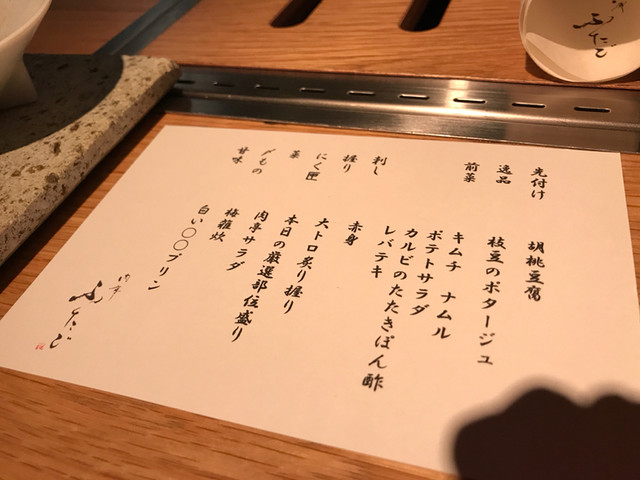 先付け 胡桃豆腐
逸品 枝豆のポタージュ
前菜 キムチ ナムル
ポテトサラダ
カルビのたたきぽん酢
レバテキ
刺し 赤身
握り 大トロ炙り握り
にく匣 本日の厳選部位盛り
菜 肉亭サラダ
〆もの 梅雑炊
甘味 白い〇〇プリン
肉亭
ふたご
ふたご